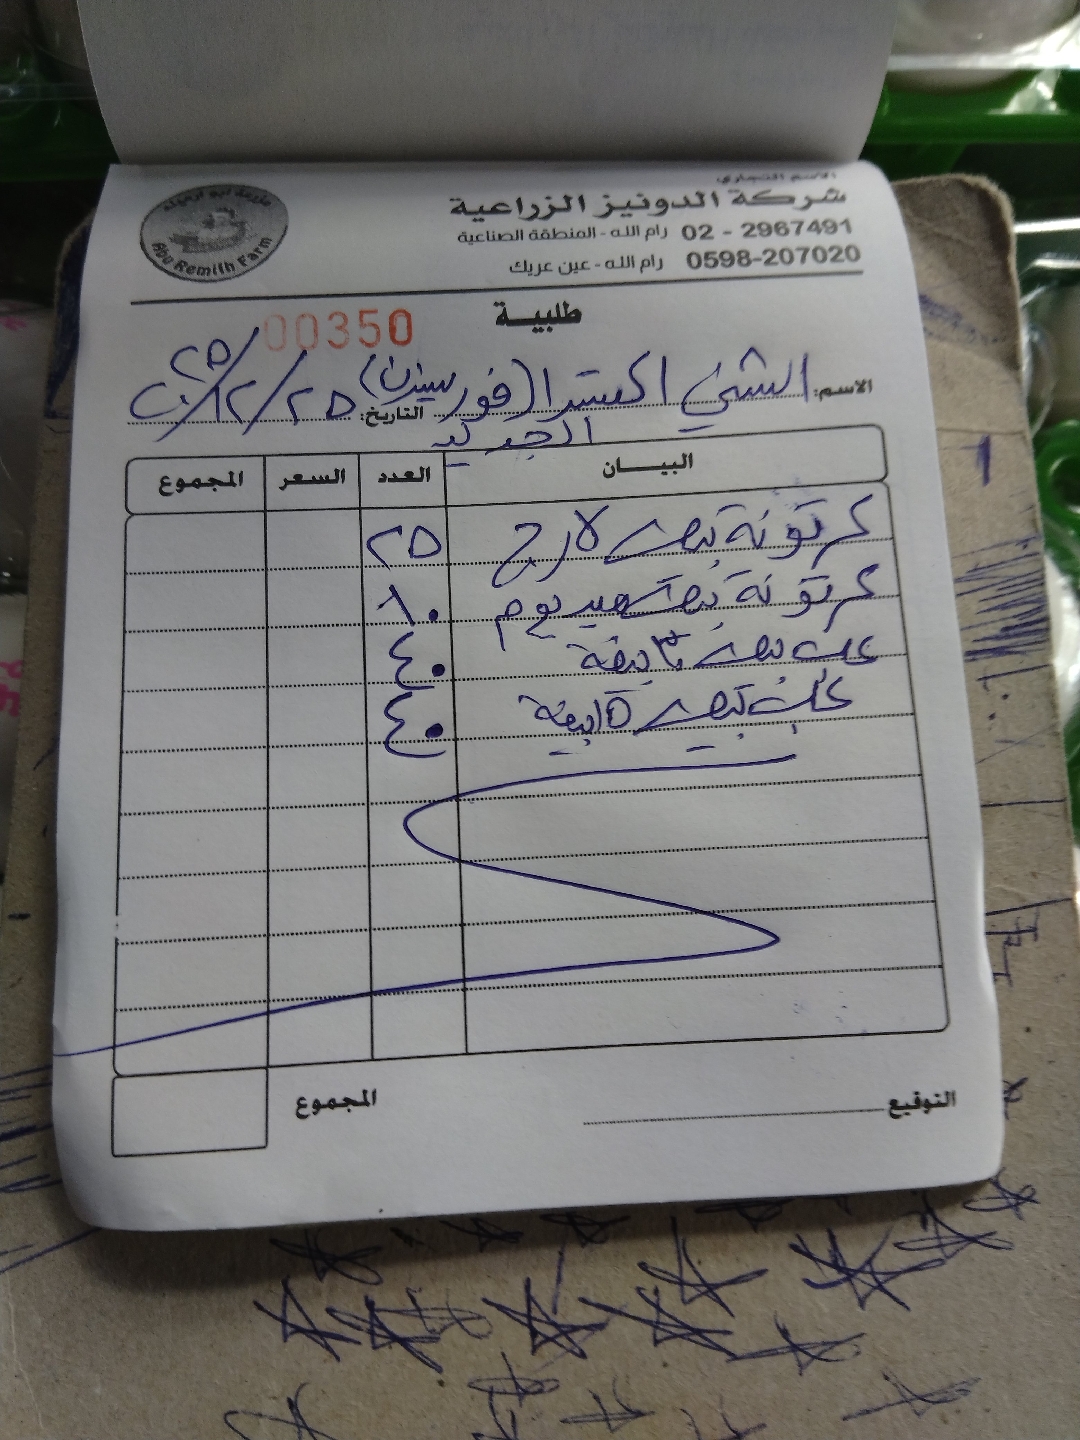 الاسم التجاري
شركة الدونيز الزراعية
02 - 2967491 رام الله - المنطقة الصناعية
0598-207020 رام الله - عين عريك
مزرعة ابو ارميله
Abu Remilh Farm
طلبية
00350
الاسم: الشني اكسترا (فور سيزن)
الجديد
التاريخ: ٢٥/١٢/٢٠٢٥
البيـــان العدد السعر المجموع
كرتونة بيض لارج ٢٥
كرتونة بيض ميديوم ١٠
علب بيض بيضة ٤٠
علب بيض ١٥ بيضة ٤٠
التوقيع المجموع